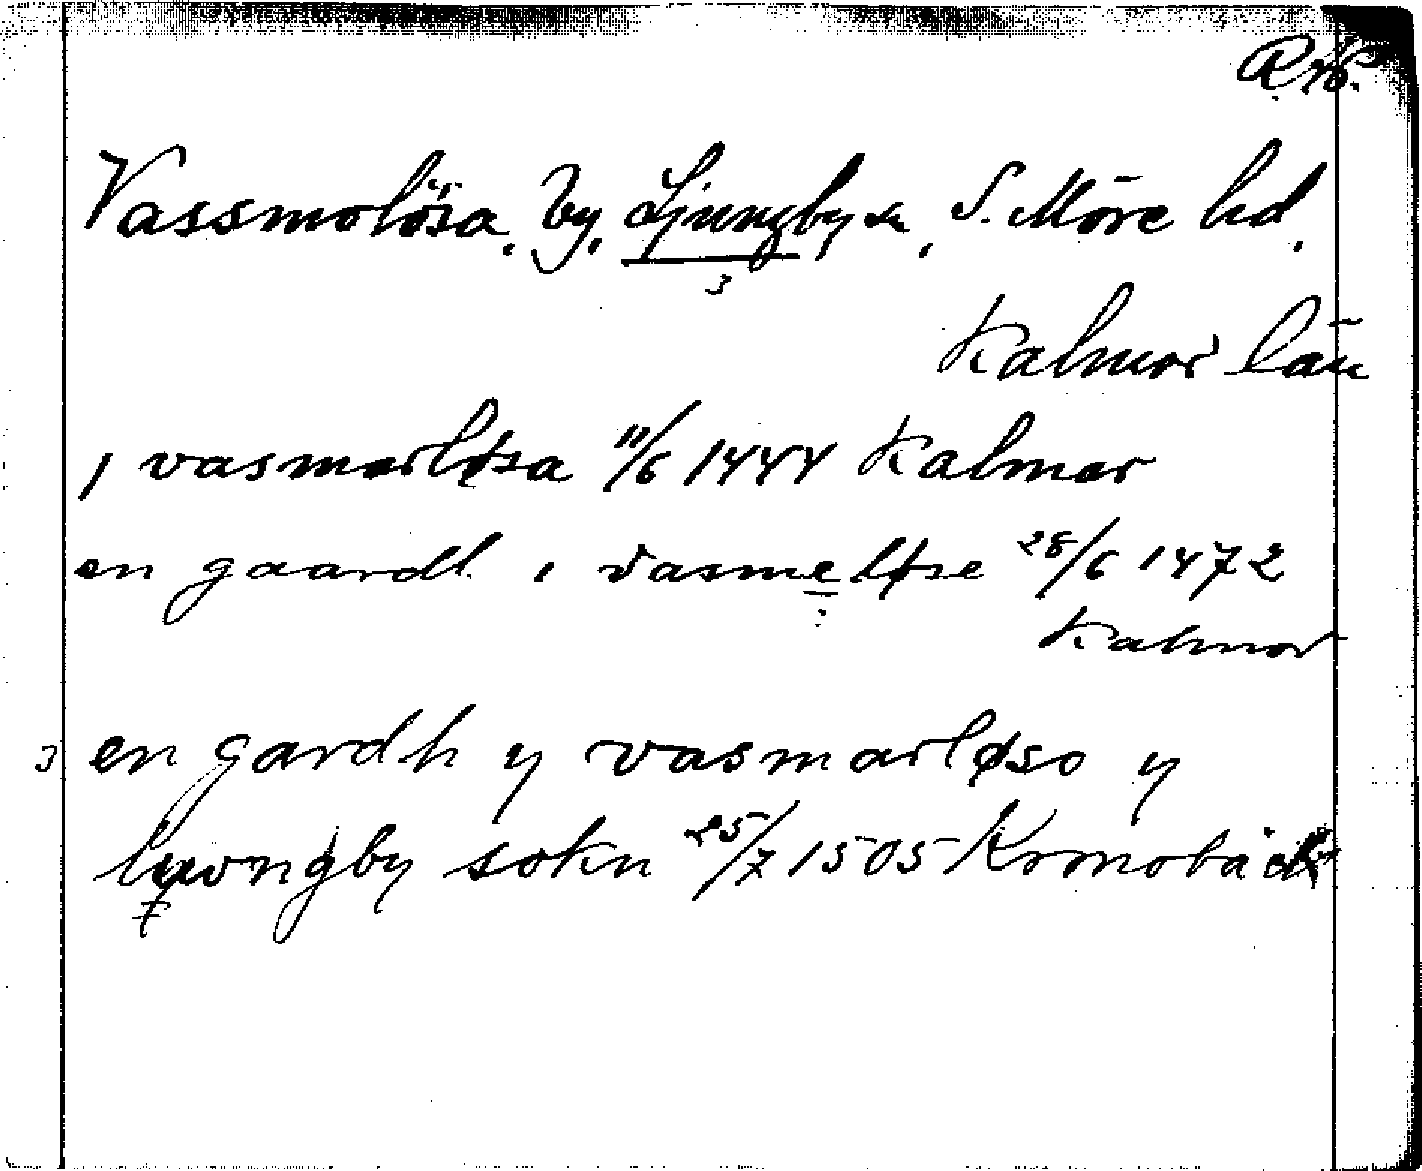 Vassmolösa, by, Ljungby sn, S. Möre hd,
3
Kalmar län
i vasmarløsa 11/6 1444 Kalmar
en gaardh i vasmeløse 28/6 1472
Kalmar
3 en gardh y vasmarløso y
lywngby sokn 25/7 1505 Kronobäck